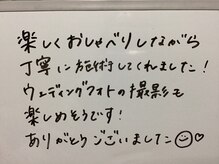 楽しくおしゃべりしながら
丁寧に施術してくれました!
ウェディングフォトの撮影も
楽しめそうです!
ありがとうございました☺♡